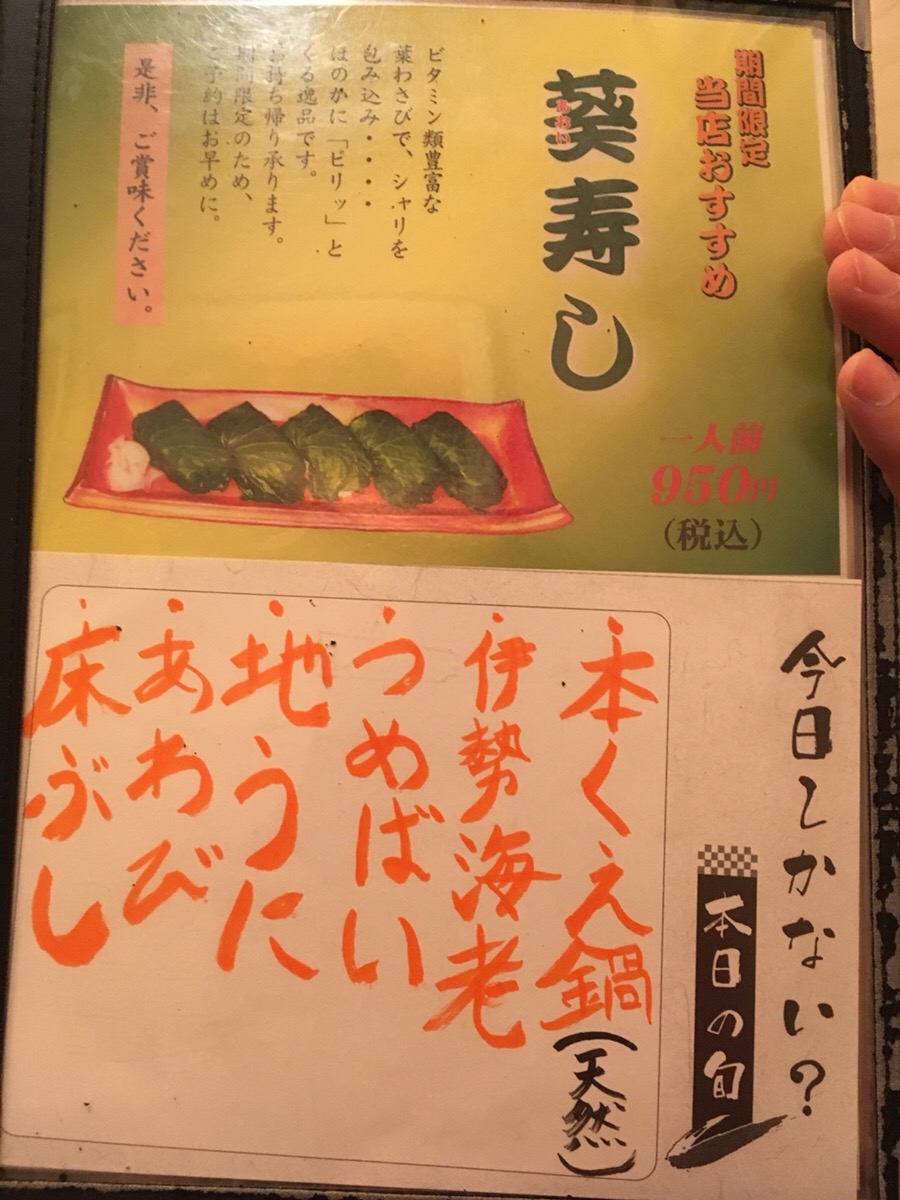 期間限定
当店おすすめ
葵寿し
あおい
一人前
950円
(税込)
ビタミン類豊富な
葉わさびで、シャリを
包み込み・・・・
ほのかに「ピリッ」と
くる逸品です。
お持ち帰り承ります。
期間限定のため、
ご予約はお早めに。
是非、ご賞味ください。
今日しかない?
本日の旬
本くえ鍋(天然)
伊勢海老
つめばい
地うに
あわび
床ぶし